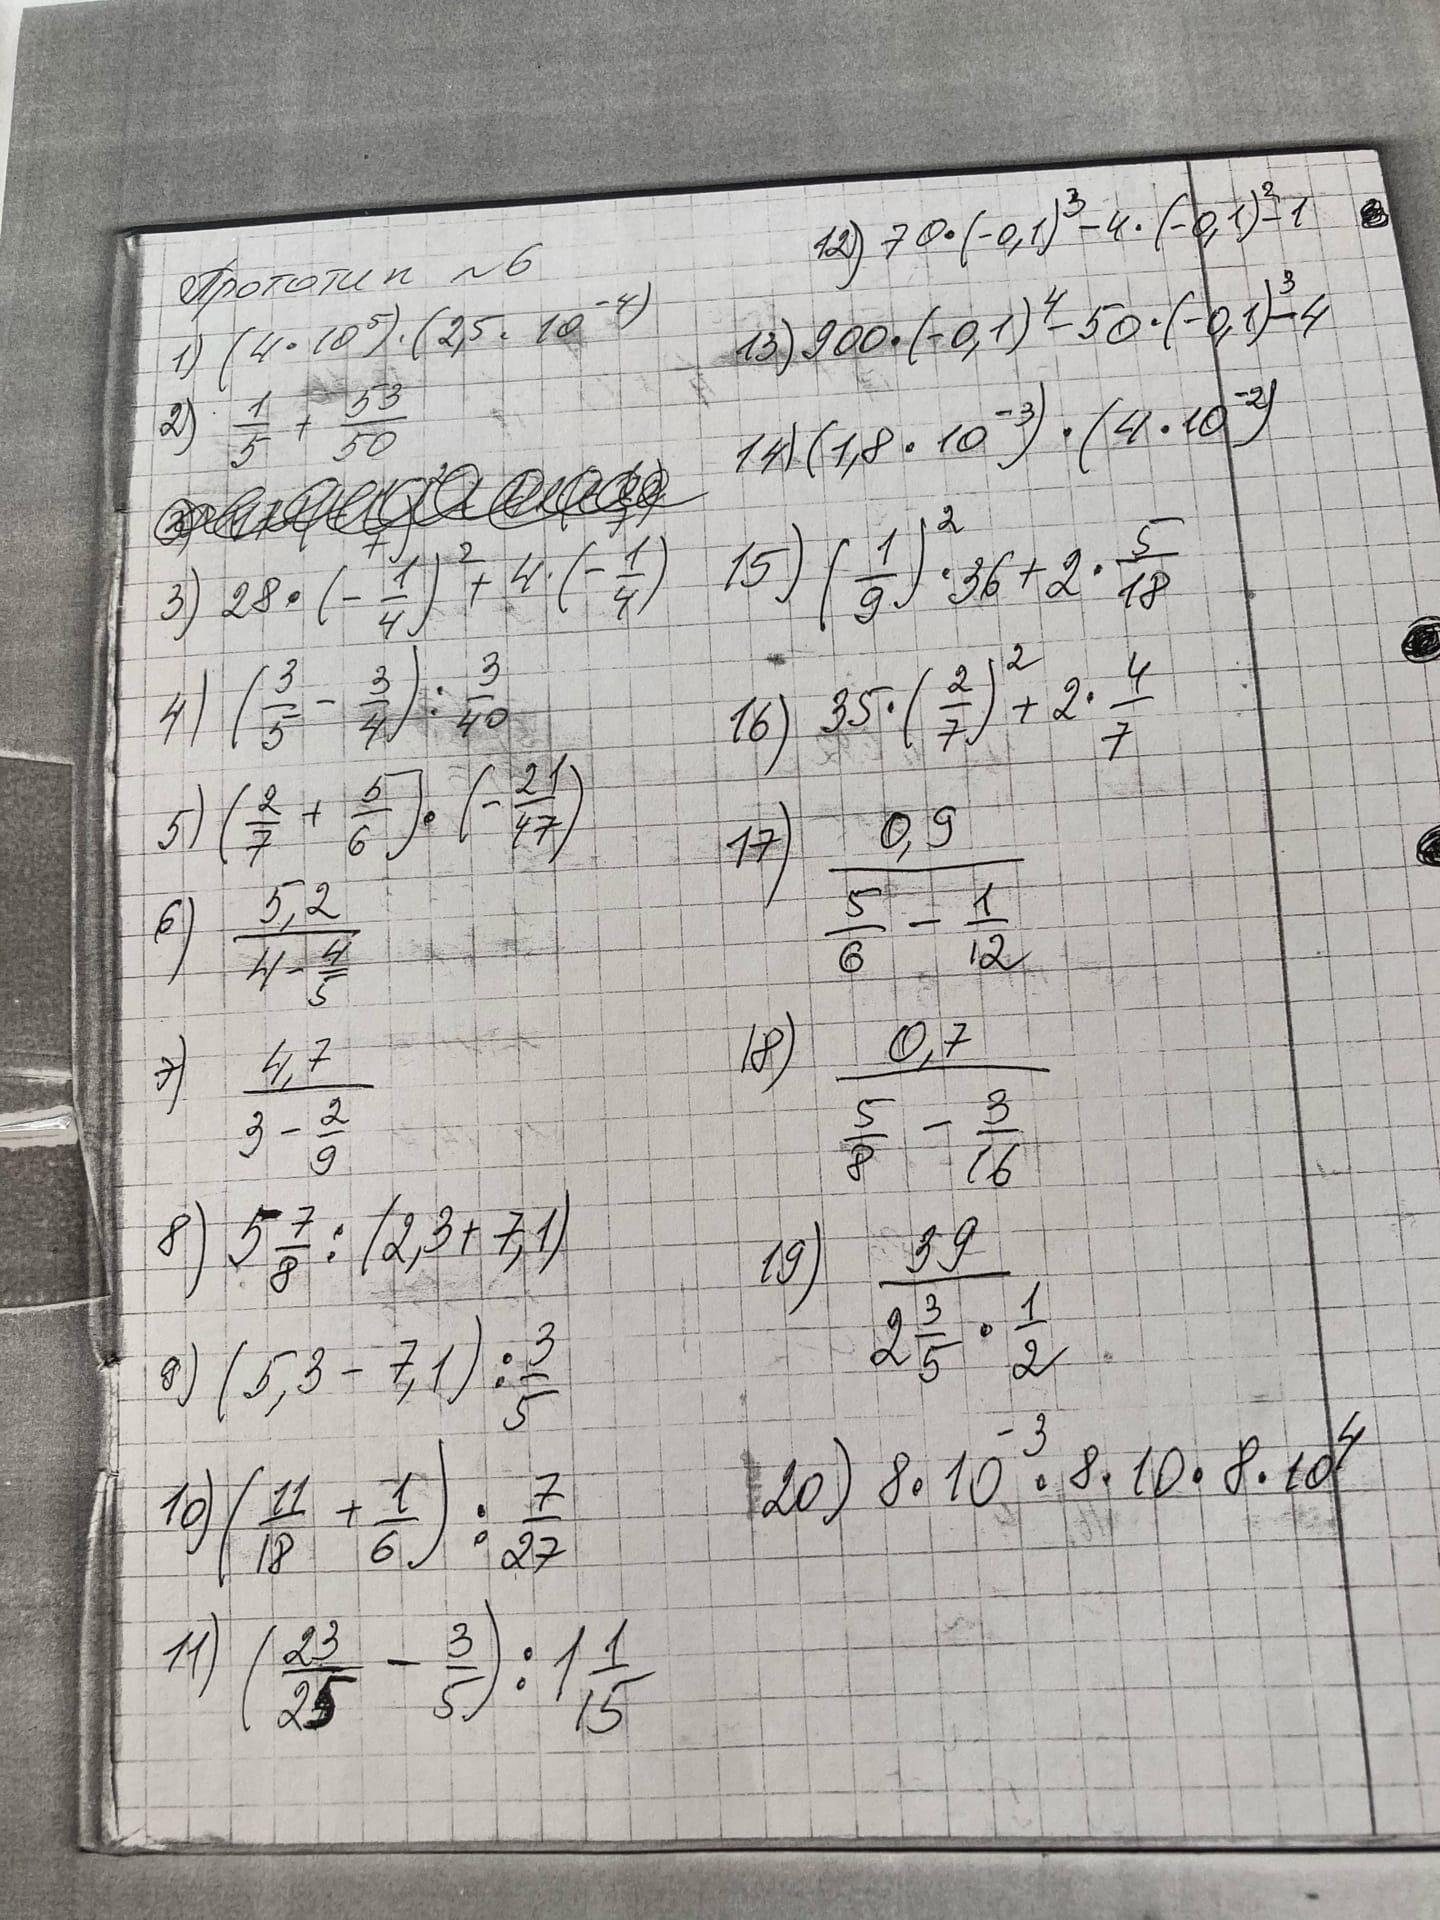 Прототип №6
1) (4·10⁵)·(2,5·10⁻⁴)
2) 1/5 + 53/50
3) 28·(-1/4)² + 4·(-1/4)
4) (3/5 - 3/4) : 3/40
5) (2/7 + 5/6]·(-21/47)
6) 5,2/(4 - 4/5)
7) 4,7/(3 - 2/9)
8) 5 7/8 : (2,3 + 7,1)
9) (5,3 - 7,1) : 3/5
10) (11/18 + 1/6) : 7/27
11) (23/25 - 3/5) : 1 1/15
12) 70·(-0,1)³ - 4·(-0,1)² - 1
13) 900·(-0,1)⁴ - 50·(-0,1)³ - 4
14) (1,8·10⁻³)·(4·10⁻²)
15) (1/9)²·36 + 2·5/18
16) 35·(2/7)² + 2·4/7
17) 0,9/(5/6 - 1/12)
18) 0,7/(5/8 - 3/16)
19) 39/(2 3/5 · 1/2)
20) 8·10⁻³·8·10·8·10⁴